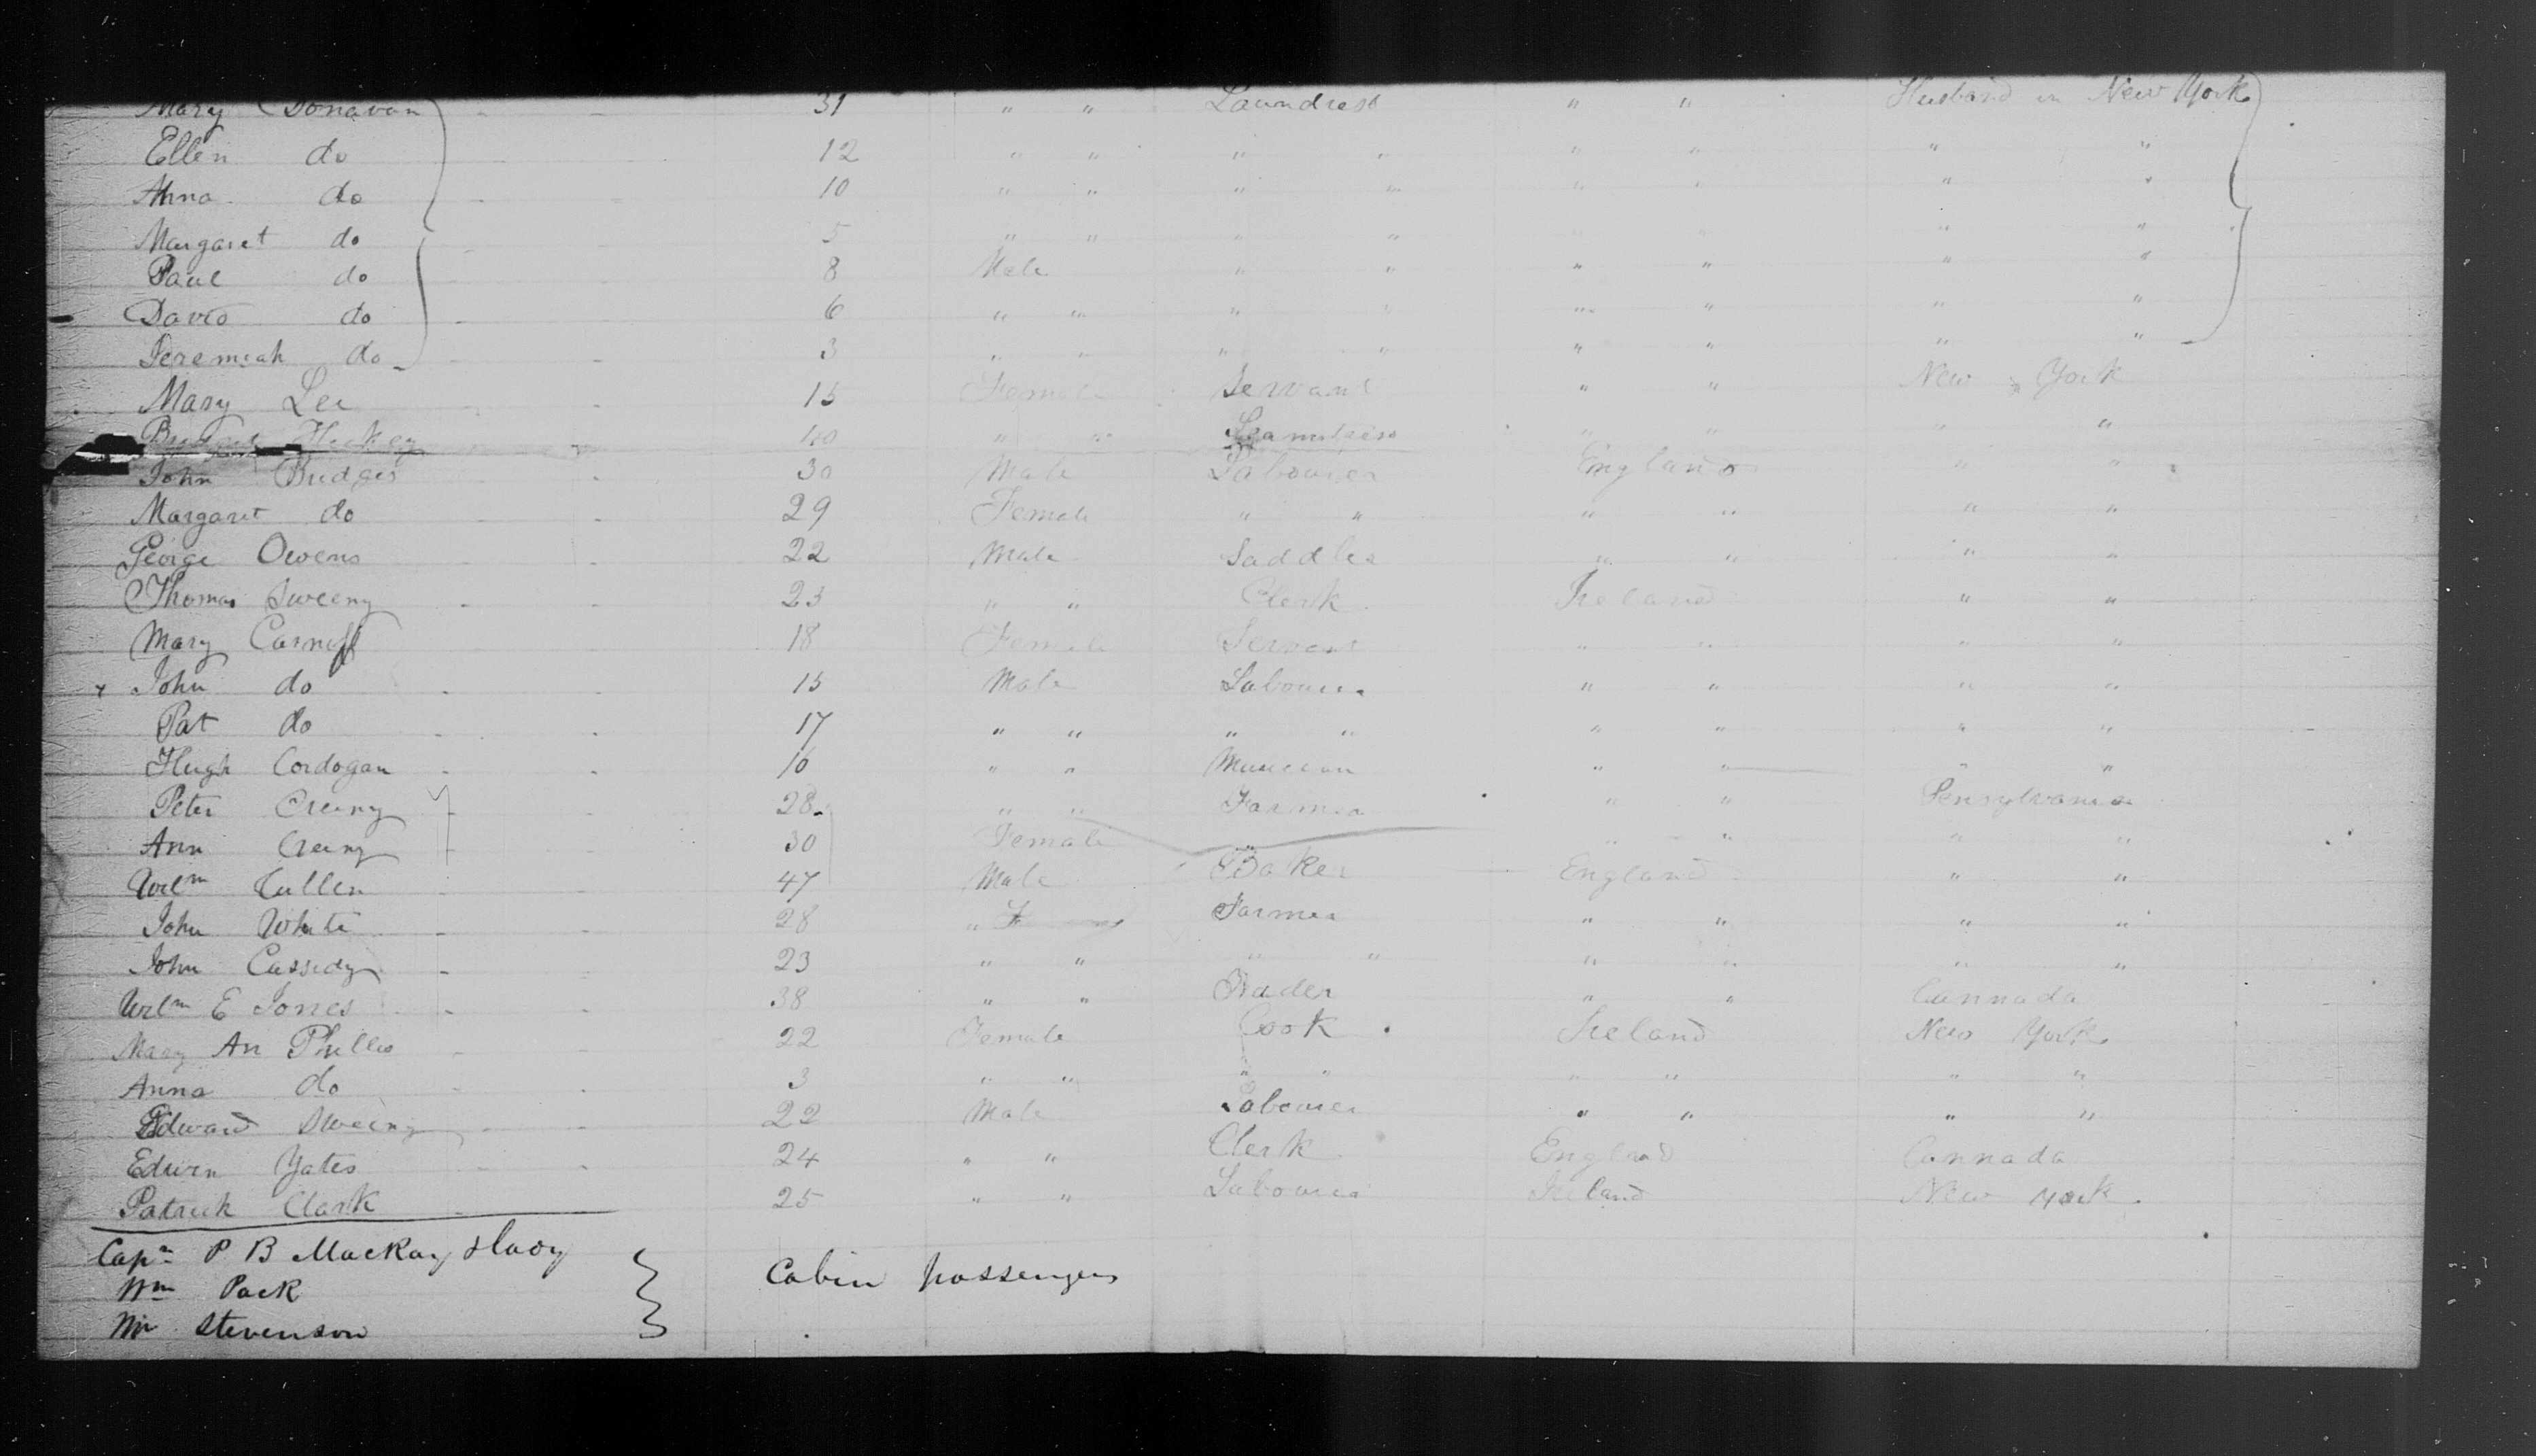 Mary Donavan 31 " " Laundress " " Husband in New York
Ellen do 12 " " " " " " " "
Anna do 10 " " " " " " " "
Margaret do 5 " " " " " " " "
Paul do 8 Male " " " " " "
David do 6 " " " " " " " "
Jeremiah do 3 " " " " " " " "
Mary Lee 15 Female Servant " " New York
Hickey 40 " " " " " "
John Bridges 30 Male Labourer England " "
Margaret do 29 Female " " " " " "
George Owens 22 Male Saddler " " " "
Thomas Sweeny 23 " " Clerk Ireland " "
Mary Carniff 18 Female Servant " " " "
John do 15 Male Labourer " " " "
Pat do 17 " " " " " " " "
Hugh Cordogan 16 " " Musician " " "
Peter Creeny 28 " " Farmer " " Pensylvania
Ann Creeny 30 Female " " " " "
Wilm Cullen 47 Male Baker England " "
John White 28 " Farmer " " " "
John Cassidy 23 " " " " " " " "
Wilm E Jones 38 " " Trader " " Cannada
Mary An Phillis 22 Female Cook Ireland New York
Anna do 3 " " " " " " " "
Edward Sweeny 22 Male Labourer " " " "
Edwin Yates 24 " " Clerk England Cannada
Patrick Clark 25 " " Labourer Ireland New York
Capn P B Mackay & Lady
Wm Pack Cabin passengers
Mr Stevenson